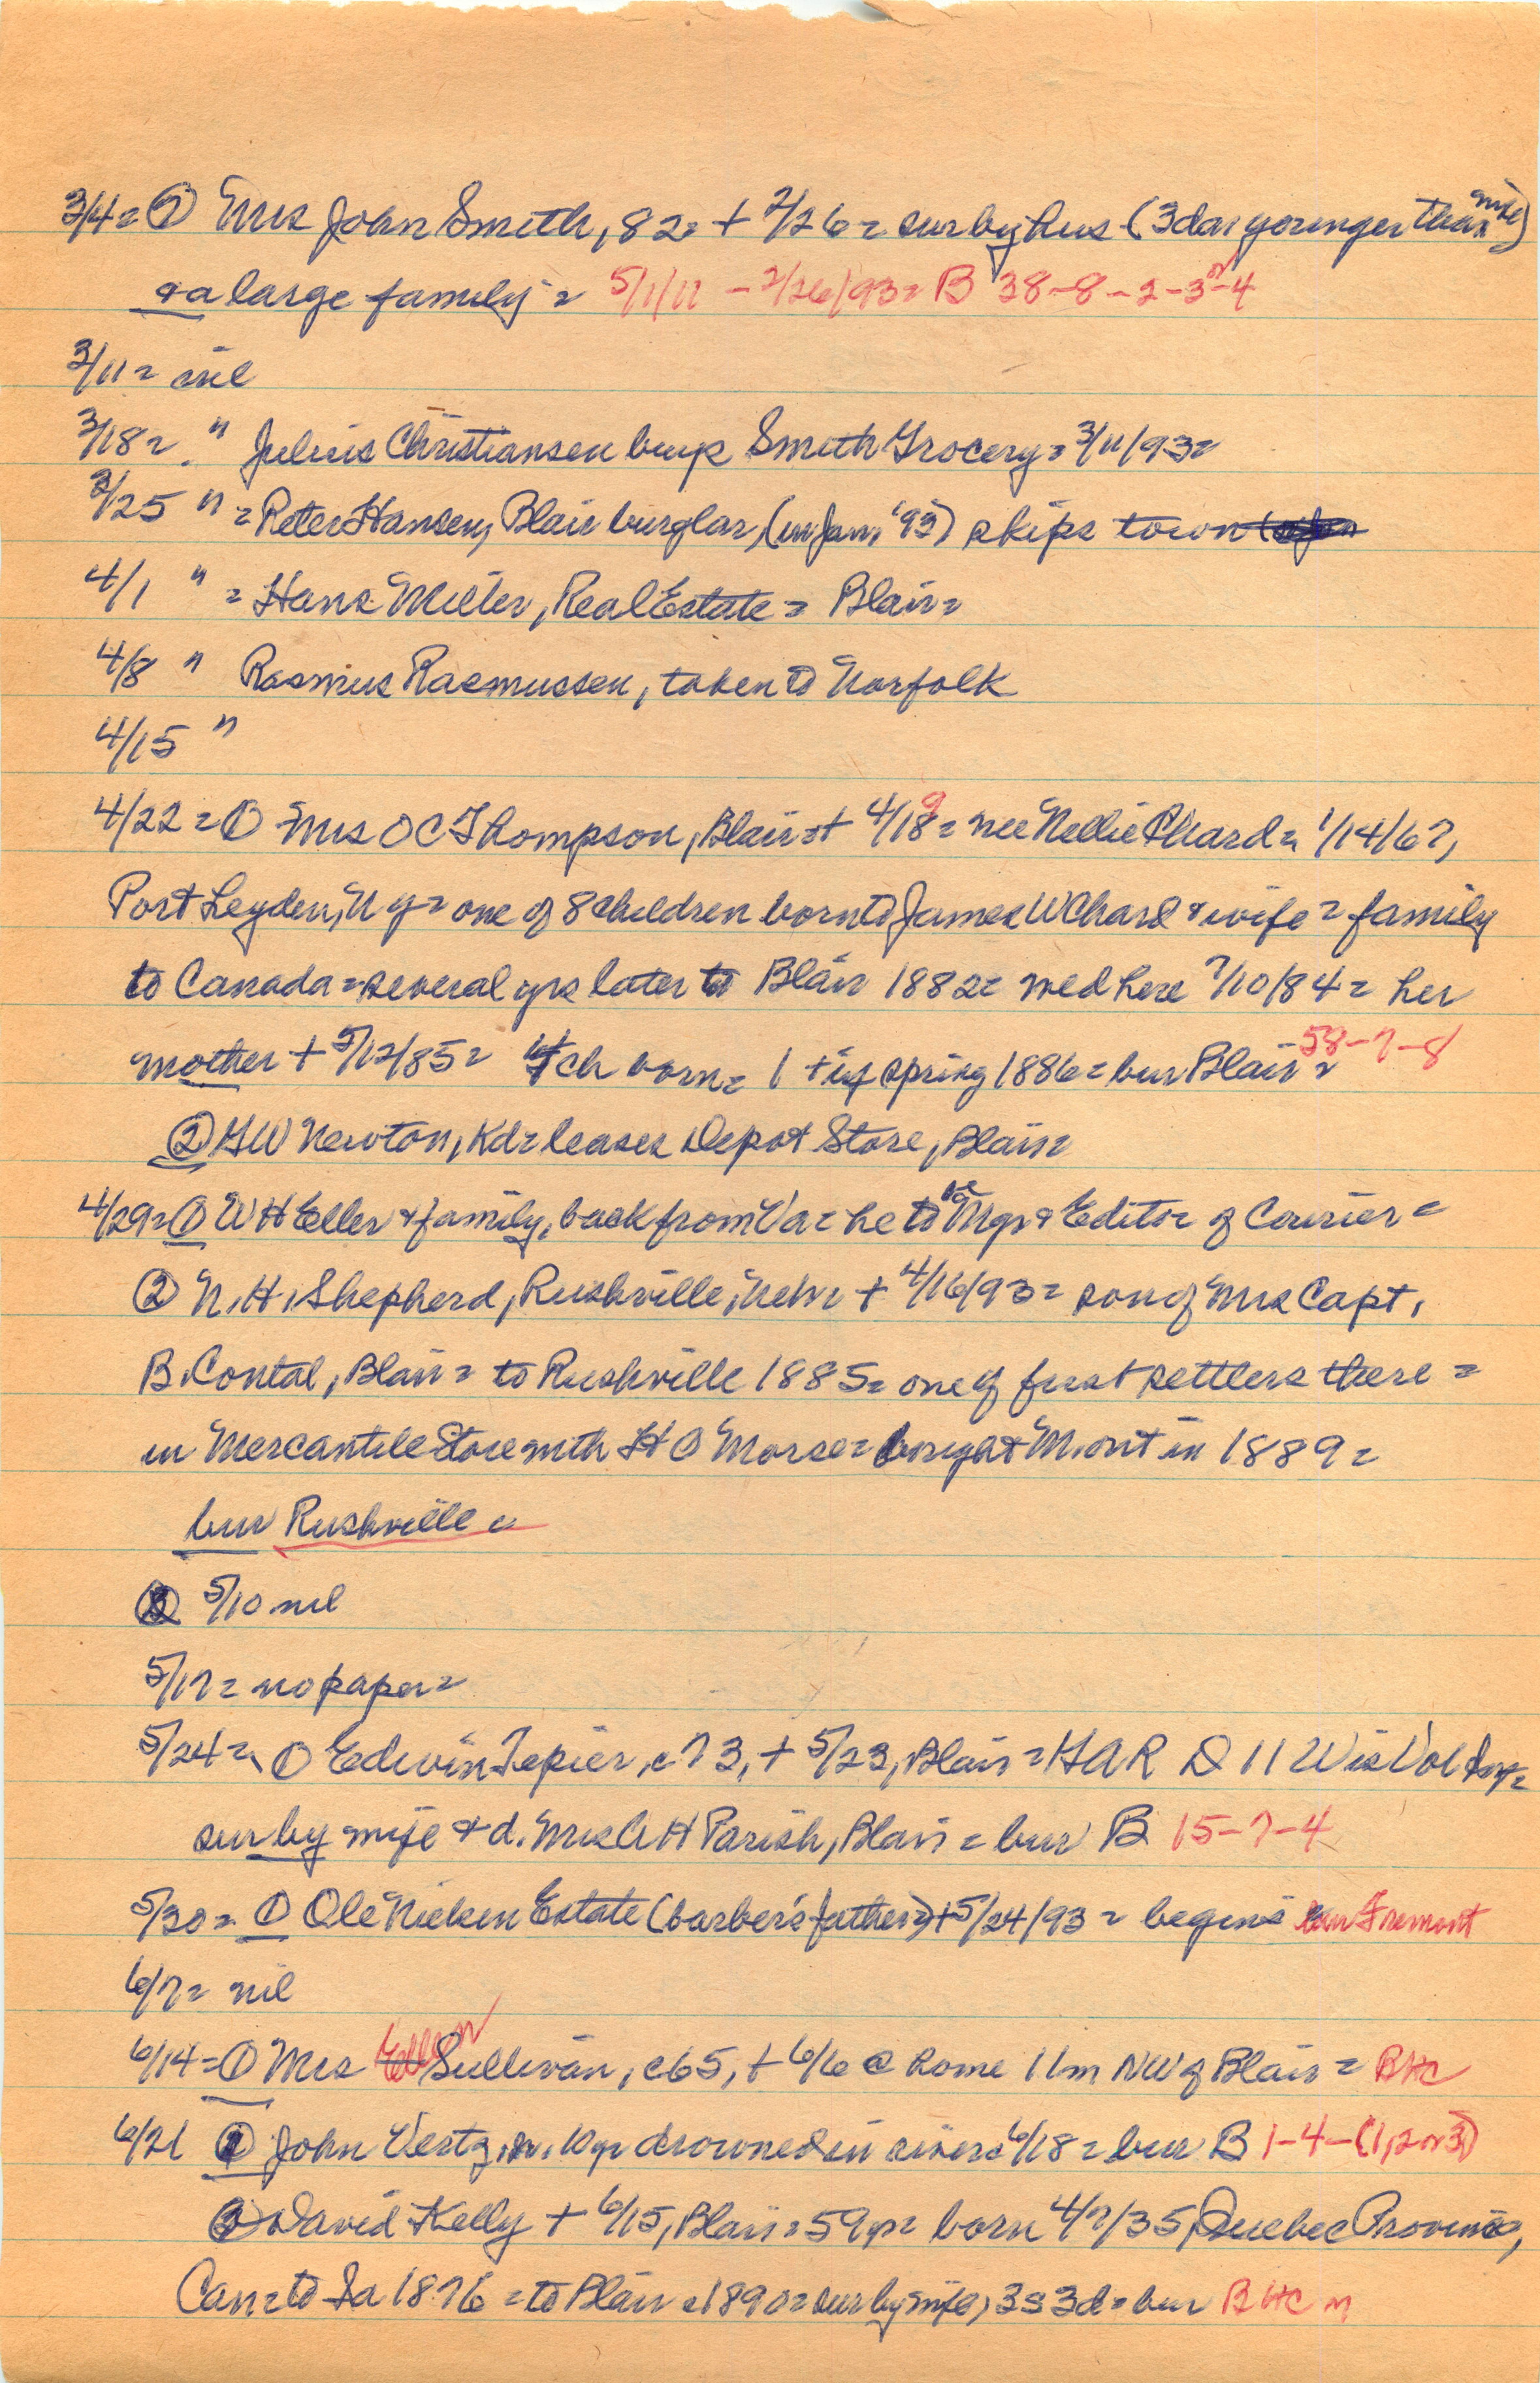 3/4 = ① Mrs John Smith, 82 = + 2/26 = sur by hus - (3 das younger than wife)
& a large family = 5/1/11 - 2/26/93 = B 38-8-2-3-4
3/11 = nil
3/18 = " Julius Christiansen buys Smith Grocery = 3/11/93 =
3/25 " = Peter Hansen, Blair burglar, (in Jan, '93) skips town
4/1 " = Hans Miller, Real Estate = Blair =
4/8 " Rasmus Rasmussen, taken to Norfolk
4/15 "
4/22 = ① Mrs O C Thompson, Blair + 4/18 9 = nee Nellie Chard = 1/14/67,
Port Leyden, N Y = one of 8 children born to James W Chard & wife = family
to Canada = several yrs later to Blair 1882 = wed here 7/10/84 = her
mother + 5/12/85 = 4 ch born = 1 + inf spring 1886 = bur Blair = 58-7-8
② G W Newton, Kd = leases Depot Store, Blair =
4/29 = ① W H Eller & family, back from Va = he to be Mgr & Editor of Courier =
② N. H. Shepherd, Rushville, Nebr + 4/16/93 = son of Mrs Capt.
B. Contal, Blair = to Rushville 1885 = one of first settlers there =
in Mercantile Store with H O Morse = bought M. out in 1889 =
bur Rushville =
5/10 nil
5/17 = no paper =
5/24 = ① Edwin Tepier, c 73, + 5/23, Blair = GAR D 11 Wis Vol Inf =
sur by wife & d. Mrs A H Parish, Blair = bur B 15-7-4
5/30 = ① Ole Nielsen Estate (barber's father) + 5/24/93 = begins bur Fremont
6/7 = nil
6/14 = ① Mrs Ellen Sullivan, c 65, + 6/6 @ home 11m NW of Blair = BHC
6/21 ① John Vertz, sr. 10 yr drowned in river = 6/18 = bur B 1-4-(1,2 or 3)
② David Kelly + 6/15, Blair = 59 yr = born 4/7/35, Quebec Province,
Can = to Ia 1876 = to Blair c 1890 = sur by wife, 3s 3d = bur BHC